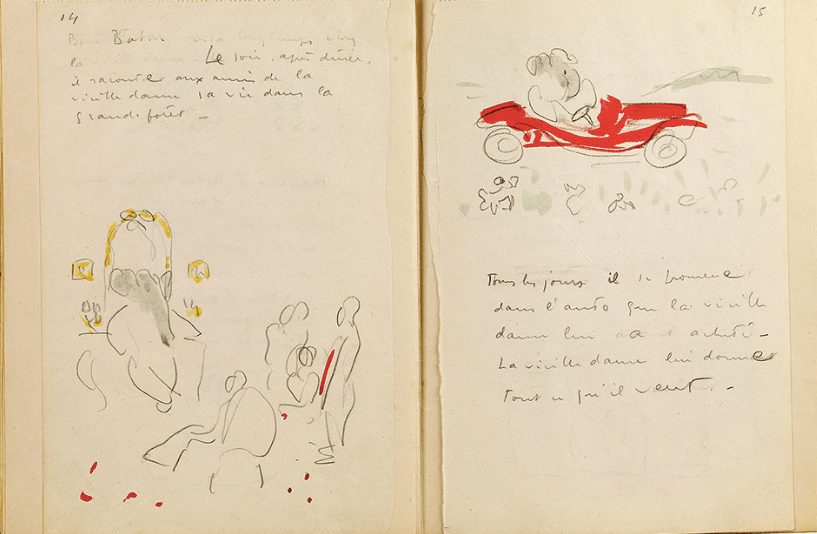 14
Babar longtemps chez
la vieille dame. Le soir, après dîner,
il raconte aux amis de la
vieille dame sa vie dans la
grande forêt –
15
Tous les jours il se promène
dans l'auto que la vieille
dame lui a acheté –
La vieille dame lui donne
tout ce qu'il veut –